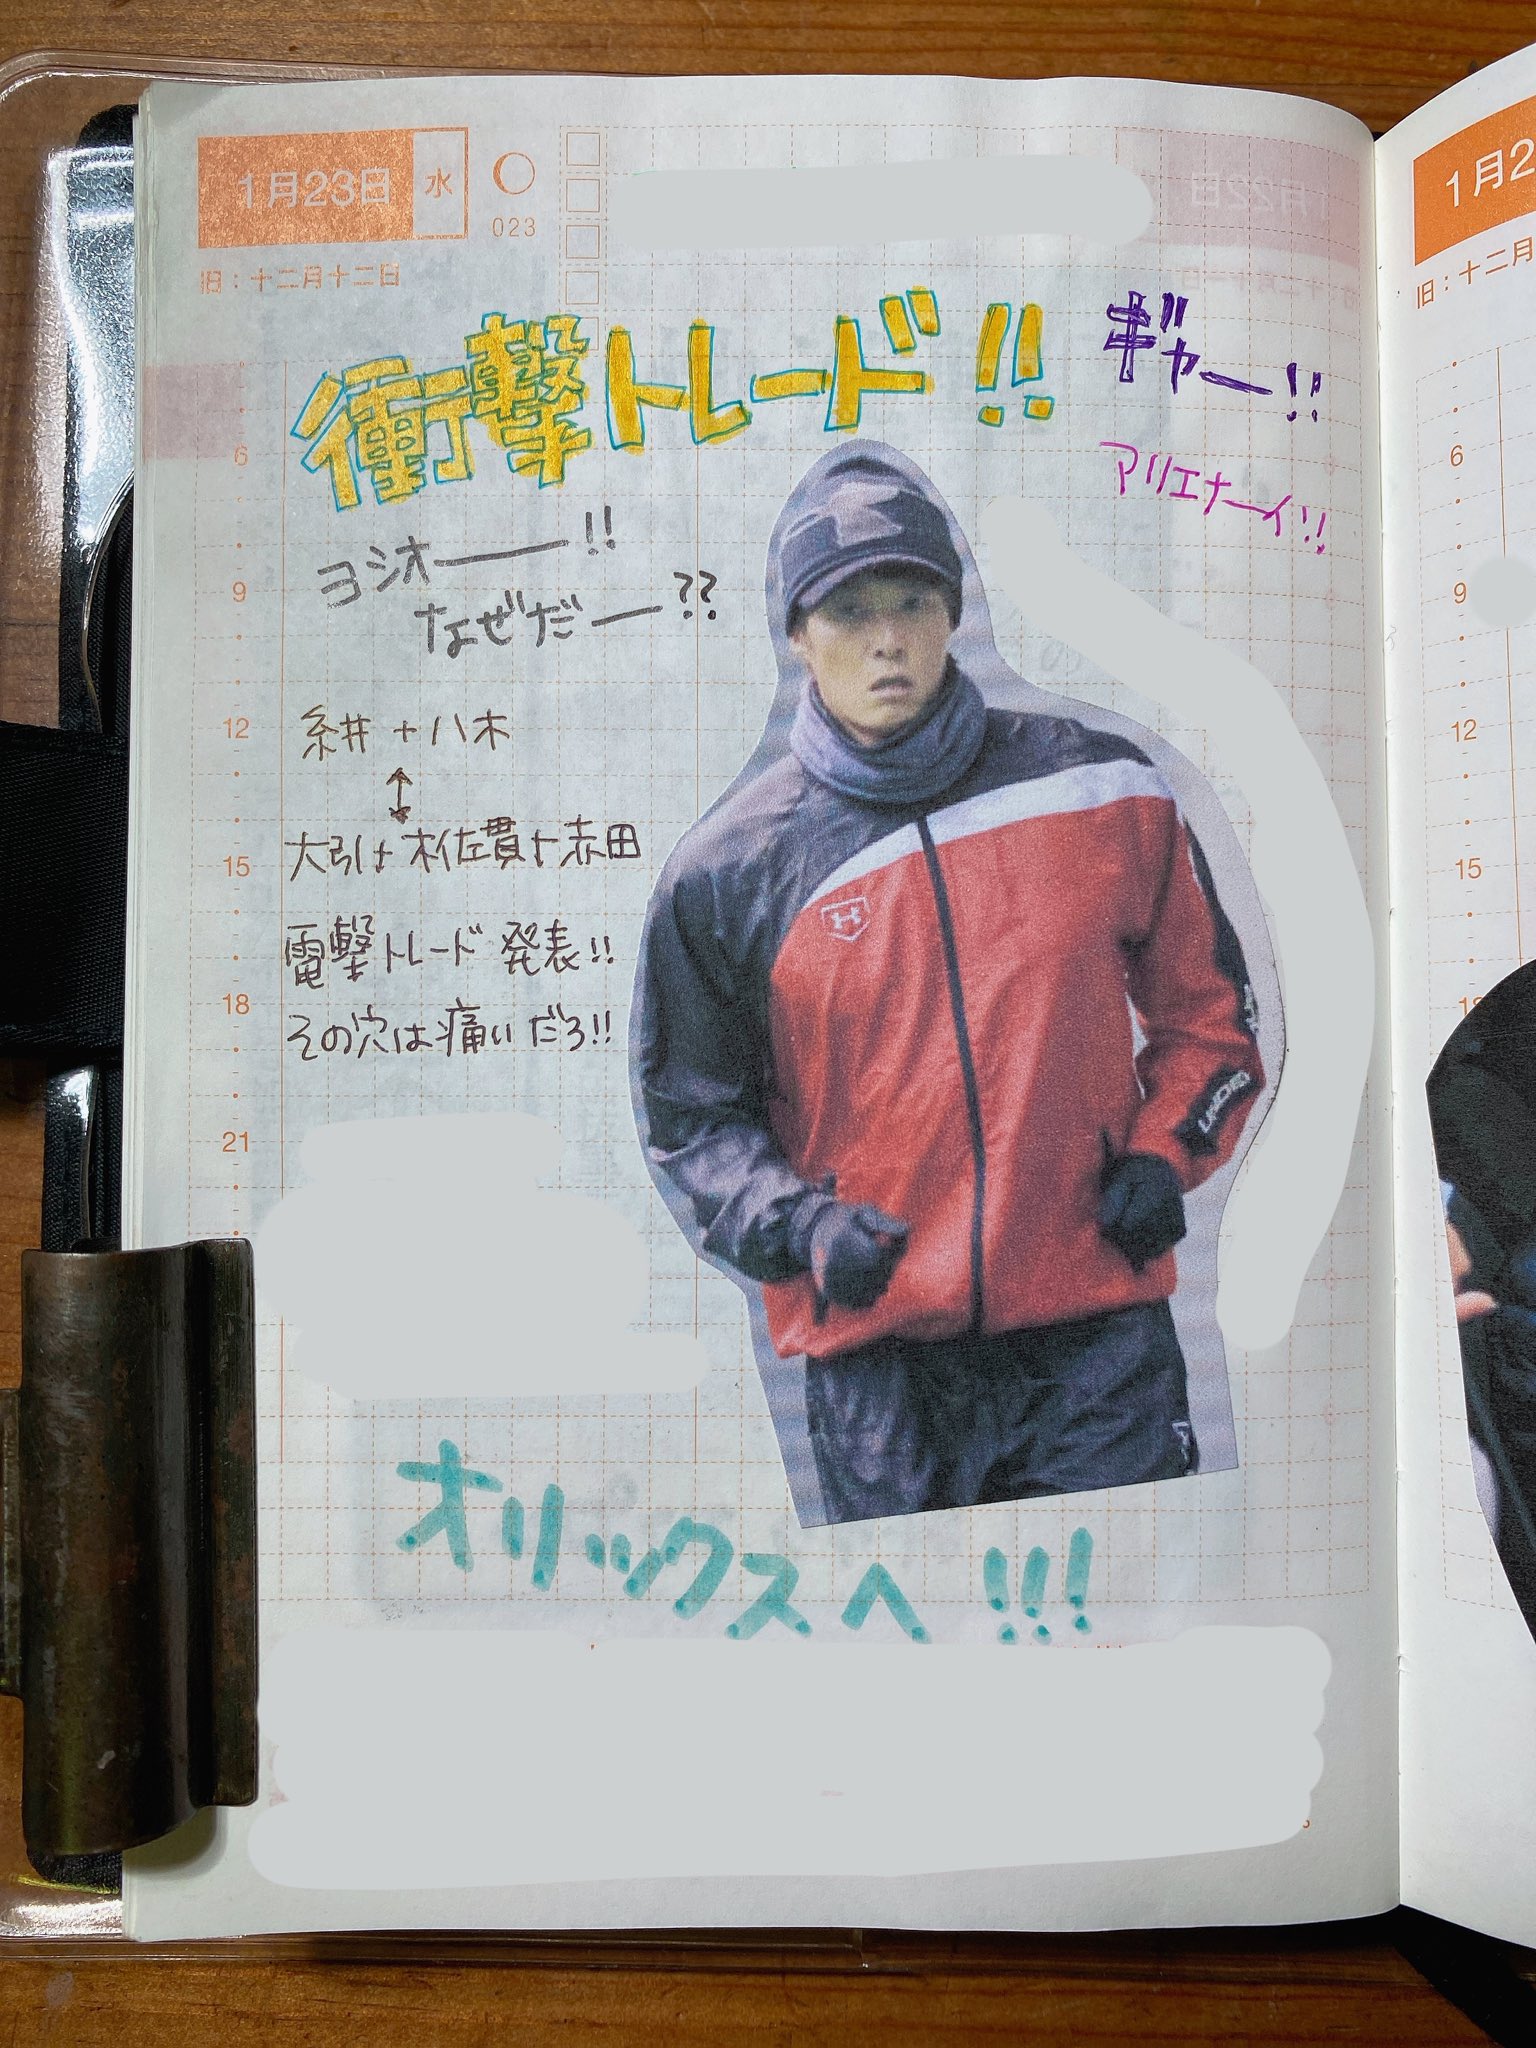 1月23日 水
023
旧：十二月十二日
衝撃トレード!!
ギャー!!
アリエナーイ!!
ヨシオー!!
なぜだー??
糸井+八木
↕
大引+木佐貫+赤田
電撃トレード発表!!
その穴は痛いだろ!!
オリックスへ!!!
6
9
12
15
18
21
UNDER
1月22日
1月2
旧：十二月
6
9
12
15
18